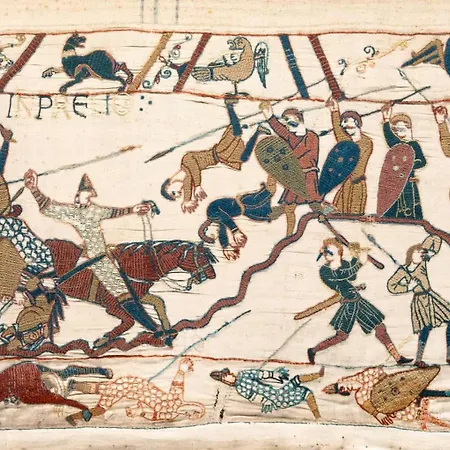 IN PRELIO: